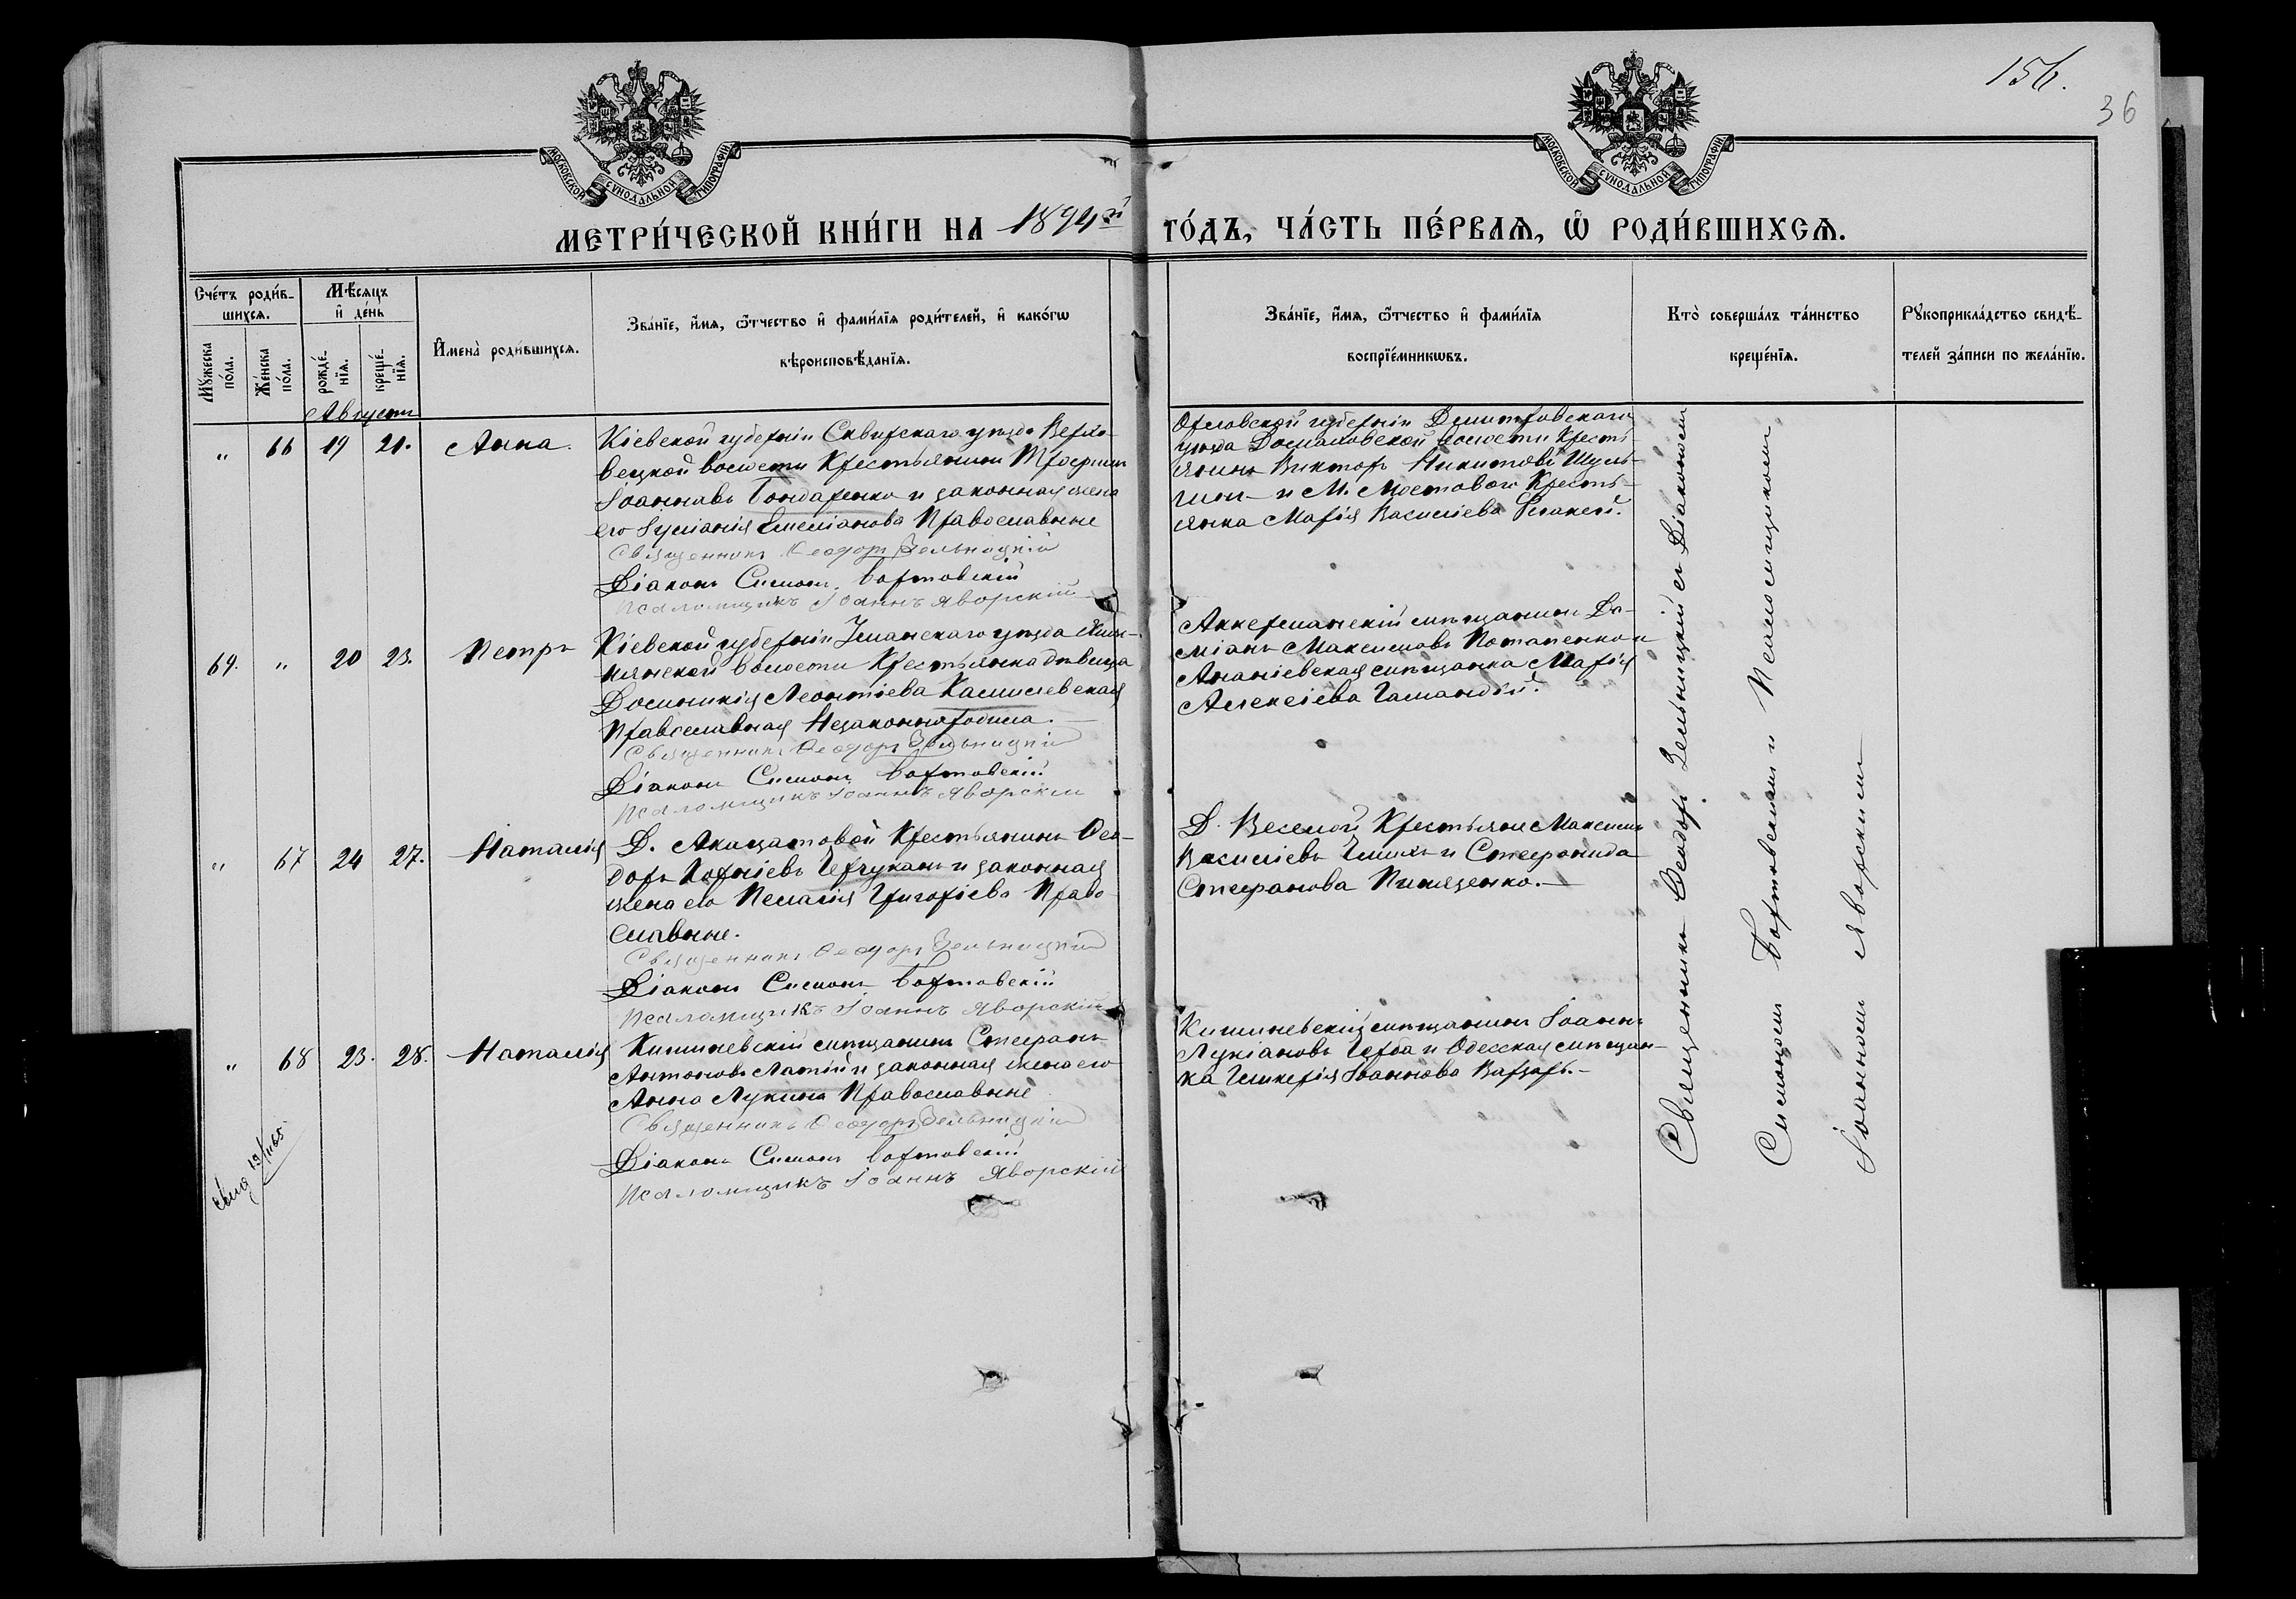 156.
36
МОСКОВСКОЙ СѴНОДАЛЬНОЙ ТИПОГРАФІИ
МОСКОВСКОЙ СѴНОДАЛЬНОЙ ТИПОГРАФІИ
МЕТРИ́ЧЕСКОЙ КНИ́ГИ НА 1894й ГО́ДЪ, ЧА́СТЬ ПЕ́РВАѦ, Ѿ РОДИ́ВШИХСѦ.
Сче́тъ роди́в-
шихсѧ.
Мꙋ́жеска
по́ла.
Же́нска
по́ла.
Мѣ́сѧцъ
и҆ де́нь
рожде́-
нїѧ.
креще́-
нїѧ.
И҆мена̀ роди́вшихсѧ.
Зва́нїе, и҆́мѧ, ѻ҆́тчество и҆ фами́лїѧ роди́телей, и҆ како́гѡ
вѣроисповѣ́данїѧ.
Зва́нїе, и҆́мѧ, ѻ҆́тчество и҆ фами́лїѧ
воспрїе́мникѡвъ.
Кто̀ соверша́лъ та́инство
креще́нїѧ.
Рꙋкоприкла́дство свидѣ́-
телей за́писи по жела́нїю.
Августъ
„ 66 19 21. Анна.
Кіевской губерніи Сквирскаго уѣзда Верхо-
вецкой волости Крестьянинъ Трофимъ
Іоанновъ Бондаренко и законная жена
его Іуліанія Емеліанова Православные
Священникъ Ѳеодоръ Зельницкій
Діаконъ Симонъ Бортовскій
Псаломщикъ Іоаннъ Яворскій
Орловской губерніи Дмитровскаго
уѣзда Домаховской волости Кресть-
янинъ Викторъ Никитовъ Шуль-
гинъ и М. Мостового Кресть-
янка Марія Василіева
69. „ 20 23. Петръ
Кіевской губерніи Уманскаго уѣзда
волости Крестьянка дѣвица
Домникія Леонтіева Касилевская
Православная Незаконнорожден.
Священникъ Ѳеодоръ Зельницкій
Діаконъ Симонъ Бортовскій
Псаломщикъ Іоаннъ Яворскій
Аккерманскій мѣщанинъ Да-
міанъ Максимовъ Потапенко и
Ананіевская мѣщанка Марія
Алексіева Гамандій.
„ 67 24 27. Наталія
Д. Акацатовой Крестьянинъ Ѳео-
доръ Корніевъ и законная
жена его Пелагія Григоріева Право-
славные.
Священникъ Ѳеодоръ Зельницкій
Діаконъ Симонъ Бортовскій
Псаломщикъ Іоаннъ Яворскій
Д. Веселой Крестьяне Максимъ
Василіевъ и Стефанида
Стефанова Пилипенко.
„ 68 23. 28. Наталія
Кишиневскій мѣщанинъ Стефанъ
Антоновъ Латій и законная жена его
Анна Лукина Православные
Священникъ Ѳеодоръ Зельницкій
Діаконъ Симонъ Бортовскій
Псаломщикъ Іоаннъ Яворскій
Кишиневскій мѣщанинъ Іоаннъ
Лукіановъ Церба и Одесская мѣщан-
ка Гликерія Іоаннова
Священникъ Ѳеодоръ Зельницкій съ Діакономъ
Симономъ Бортовскимъ и Псаломщикомъ
Іоанномъ Яворскимъ